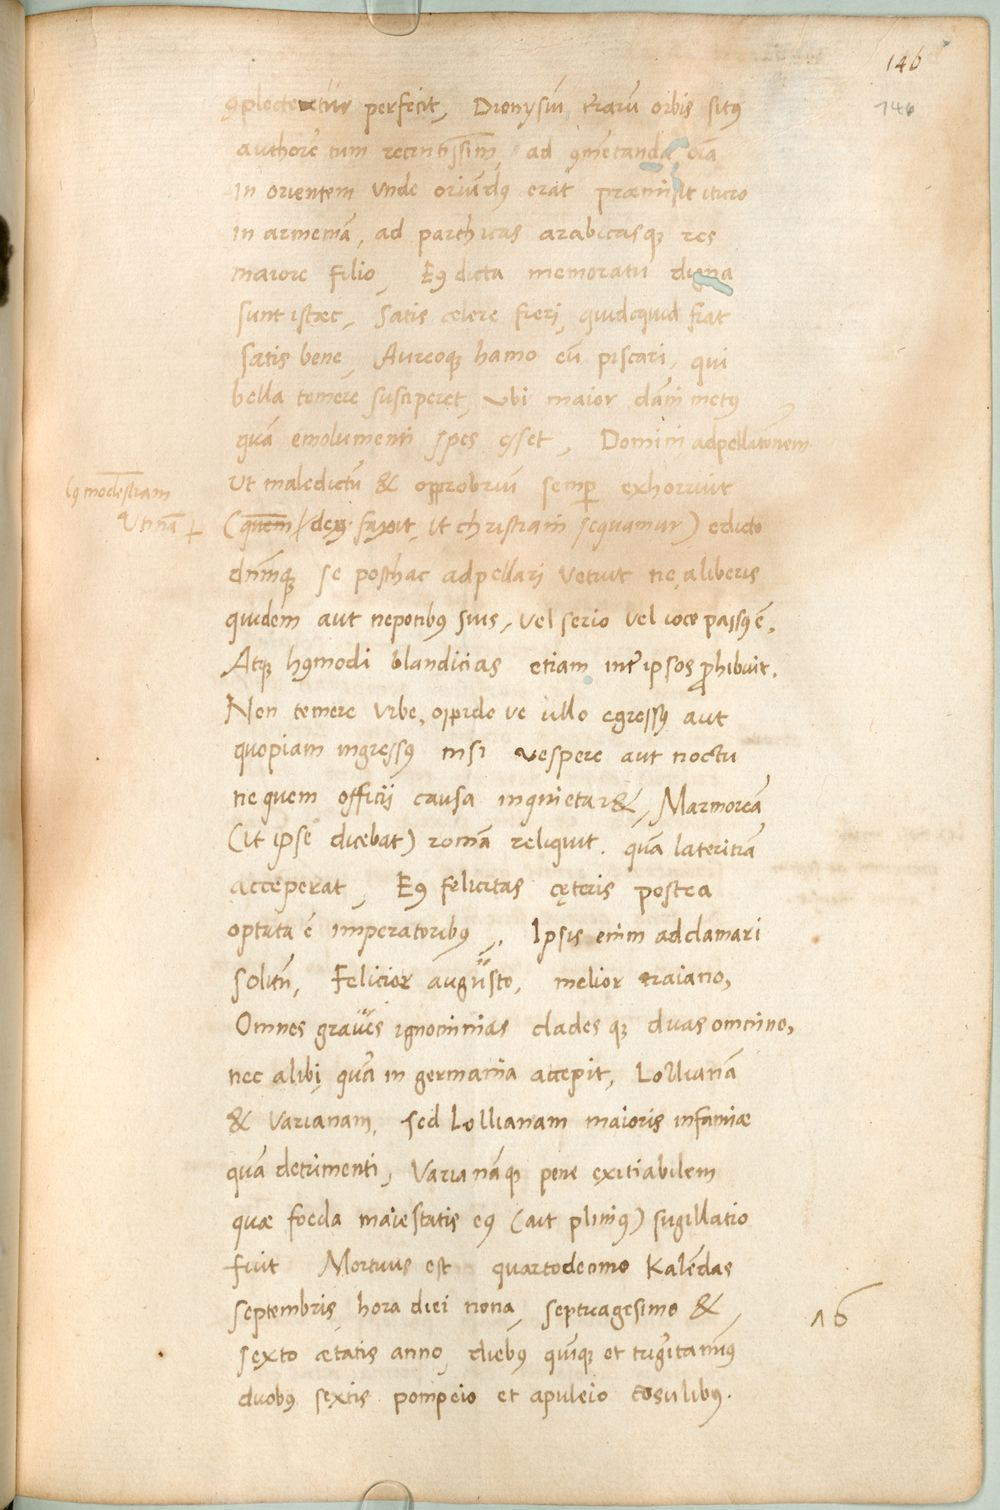 146
146
ꝯplecteretur perfecit, Dionysiũ, terrarũ orbis sitꝰ
authorẽ tum recentissim̃, ad ꝯmẽtanda oĩa
in orientem unde oriũdꝰ erat præmisit ituro
in armeniã, ad parthicas arabicasqꝫ res
maiore filio, Eꝰ dicta memoratu digna
sunt istæc, Satis celere fieri, quidquid fiat
satis bene, Aureoqꝫ hamo eũ piscari, qui
bella temere susciperet, ubi maior dãni metꝰ
quã emolumenti spes eẽt, Domini adpellationem
ut maledictũ & opprobriũ semꝑ exhorruit
Cꝰ modestiam
Utinã +
(quem deꝰ faxit, ut christiani sequamur) edicto
dñmqꝫ se posthac adpellari vetuit ne a liberis
quidem aut nepotibꝰ suis, vel serio vel ioco passꝰ ẽ,
Atqꝫ hꝰmodi blandicias etiam inter ipsos ꝓhibuit.
Non temere urbe, oppido ve ullo egressꝰ aut
quopiam ingressꝰ nisi vespere aut noctu
ne quem officii causa inquietar&, Marmoreã
(ut ipse dicebat) romã reliquit. quã lateritiã
acceperat, Eꝰ felicitas cęteris postea
optata ẽ imperatoribꝰ, Ipsis enim adclamari
solitũ, Felicior augusto, melior traiano,
Omnes graves ignominias cladesqꝫ duas omnino,
nec alibi quã in germania accepit, Lollianã
& Varianam, sed Lollianam maioris infamiæ
quã detrimenti, Varianãqꝫ pene exitiabilem
quæ foeda maiestatis eꝰ (aut pliniꝰ) sugillatio
fuit Mortuus est quartodecimo Kalẽdas
septembris, hora diei nona, septuagesimo &
16
sexto ætatis anno, diebꝰ quĩqꝫ et trigĩta minꝰ
duobꝰ sextis pompeio et apuleio cõsulibꝰ.